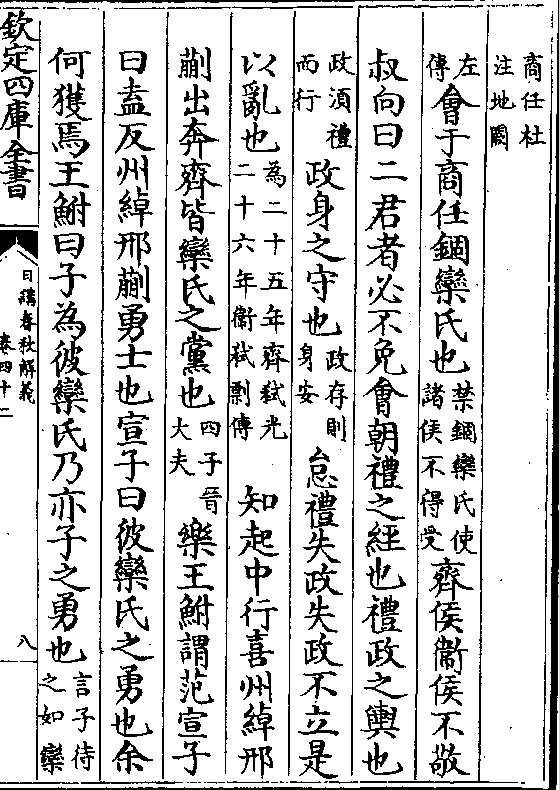 商任杜
注地闕
左傳會于商任錮欒氏也禁錮欒氏使諸侯不得受齊侯衞侯不敬
叔向曰二君者必不免會朝禮之經也禮政之輿也
政須禮而行政身之守也政存則身安怠禮失政失政不立是
以亂也為二十五年齊弑光二十六年衞弑剽傳知起中行喜州綽邢
蒯出奔齊皆欒氏之黨也四子晉大夫樂王鮒謂范宣子
曰盍反州綽邢蒯勇士也宣子曰彼欒氏之勇也余
何獲焉王鮒曰子為彼欒氏乃亦子之勇也言子待之如欒
欽定四庫全書
日講春秋解義
卷四十二
八